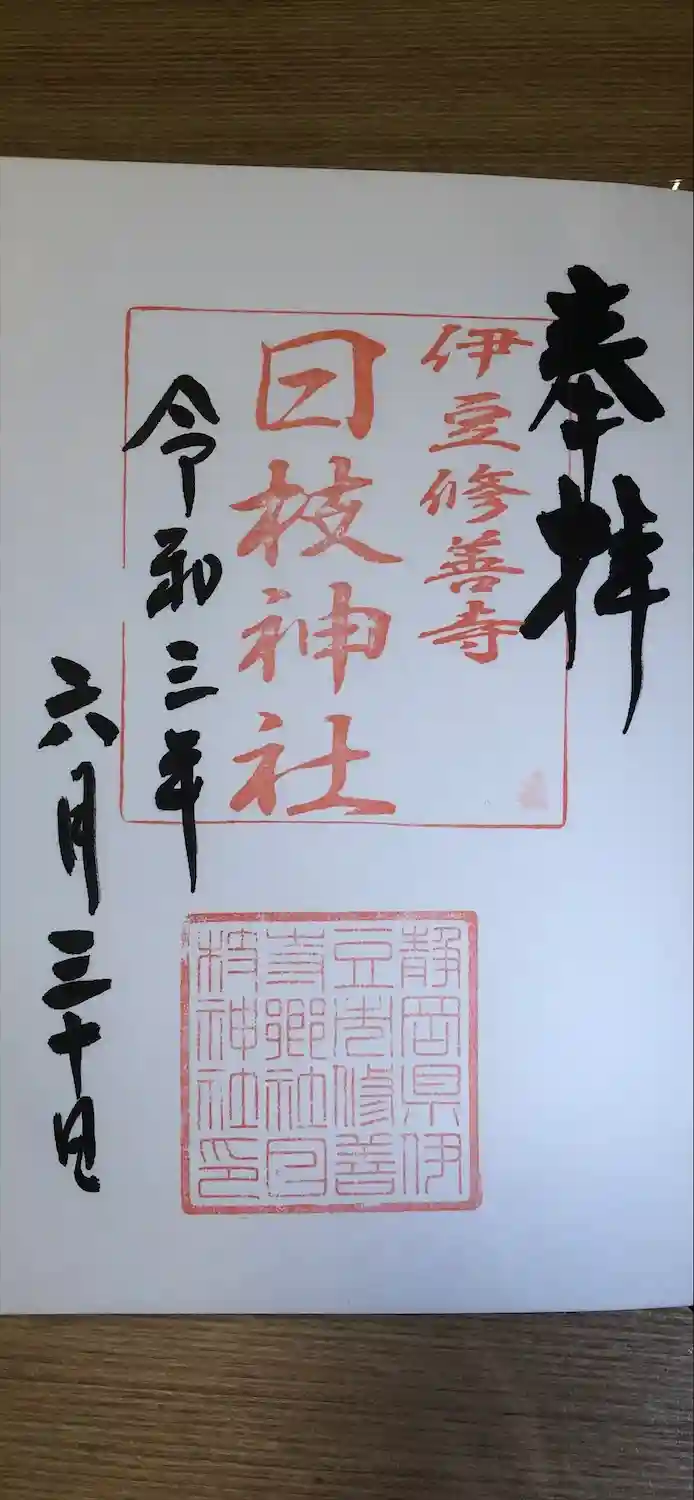 奉拝
伊豆修善寺
日枝神社
令和三年
六月三十日
静岡県伊
豆市修善
寺郷社日
枝神社印